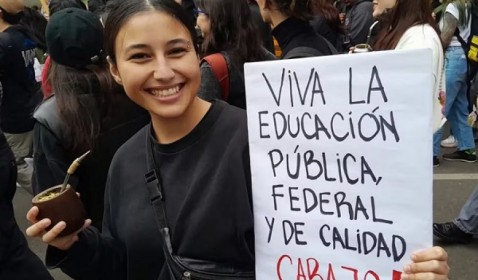 VIVA LA
EDUCACIÓN
PÚBLICA,
FEDERAL
Y DE CALIDAD
CARAJO!